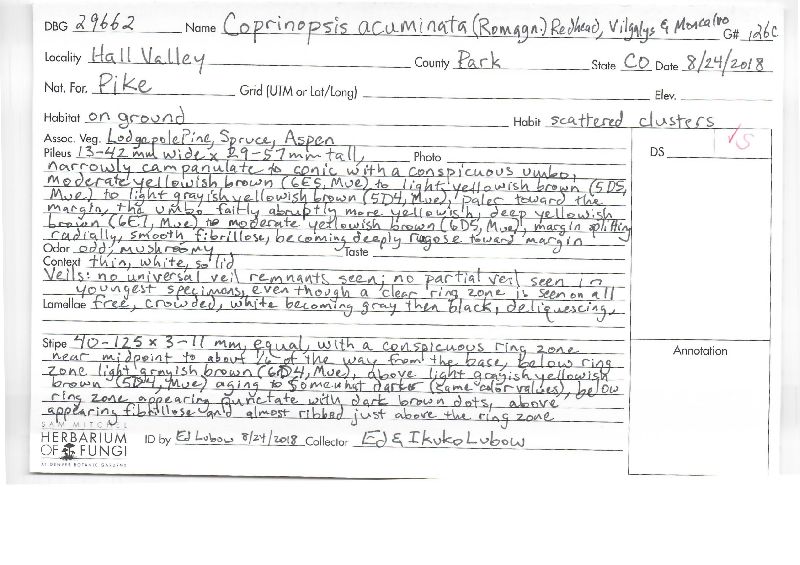 DBG 29662 Name Coprinopsis acuminata (Romagn.) Redhead, Vilgalys & Moncalvo G# 126C
Locality Hall Valley County Park State CO Date 8/24/2018
Nat. For. Pike Grid (UIM or Lat/Long) Elev.
Habitat on ground Habit scattered clusters
Assoc. Veg. Lodgepole Pine, Spruce, Aspen DS VS
Pileus 13-42 mm wide x 29-57 mm tall, Photo
narrowly campanulate to conic with a conspicuous umbo,
moderate yellowish brown (6E5, Mue) to light yellowish brown (5D5,
Mue) to light grayish yellowish brown (5D4, Mue), paler toward the
margin, the umbo faitly abruptly more yellowish, deep yellowish
brown (6E7, Mue) to moderate yellowish brown (6D5, Mue), margin splitting
radially, smooth fibrillose, becoming deeply rugose toward margin
Odor odd, mushroomy Taste
Context thin, white, solid
Veils: no universal veil remnants seen; no partial veil seen in
youngest specimens, even though a clear ring zone is seen on all
Lamellae free, crowded, white becoming gray then black, deliquescing,
Stipe 40-125 x 3-11 mm, equal, with a conspicuous ring zone
near midpoint to about 1/6 of the way from the base, below ring
zone light grayish brown (6D4, Mue), above light grayish yellowish
brown (5D4, Mue) aging to somewhat darker (same color values), below
ring zone appearing punctate with dark brown dots, above
appearing fibrillose and almost ribbed just above the ring zone
Annotation
SAM MITCHEL
HERBARIUM
OF FUNGI
AT DENVER BOTANIC GARDENS
ID by Ed Lubow 8/24/2018 Collector Ed & Ikuko Lubow